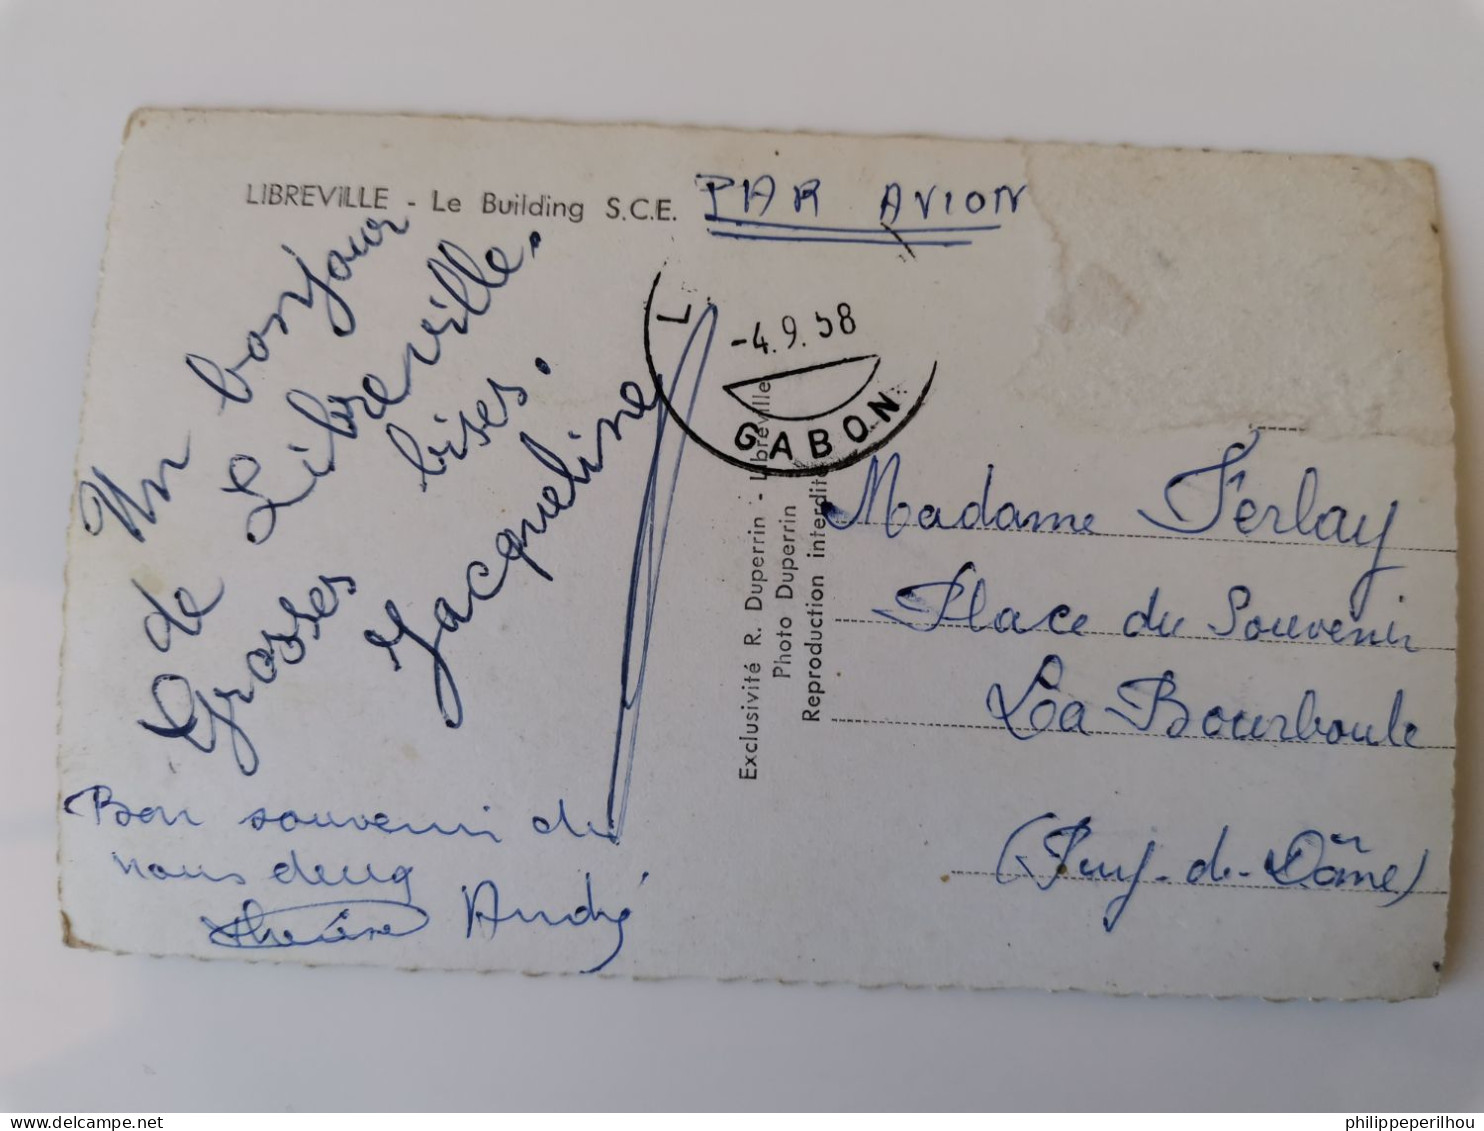 LIBREVILLE - Le Building S.C.E.
PAR AVION
L
-4.9.58
GABON
Un bonjour
de Libreville.
Grosses bises.
Jacqueline
Bon souvenir de
nous deux
Thérèse André
Exclusivité R. Duperrin - Libreville
Photo Duperrin
Reproduction interdite
Madame Ferlay
Place du Souvenir
La Bourboule
(Puy-de-Dôme)
philippeperilhou